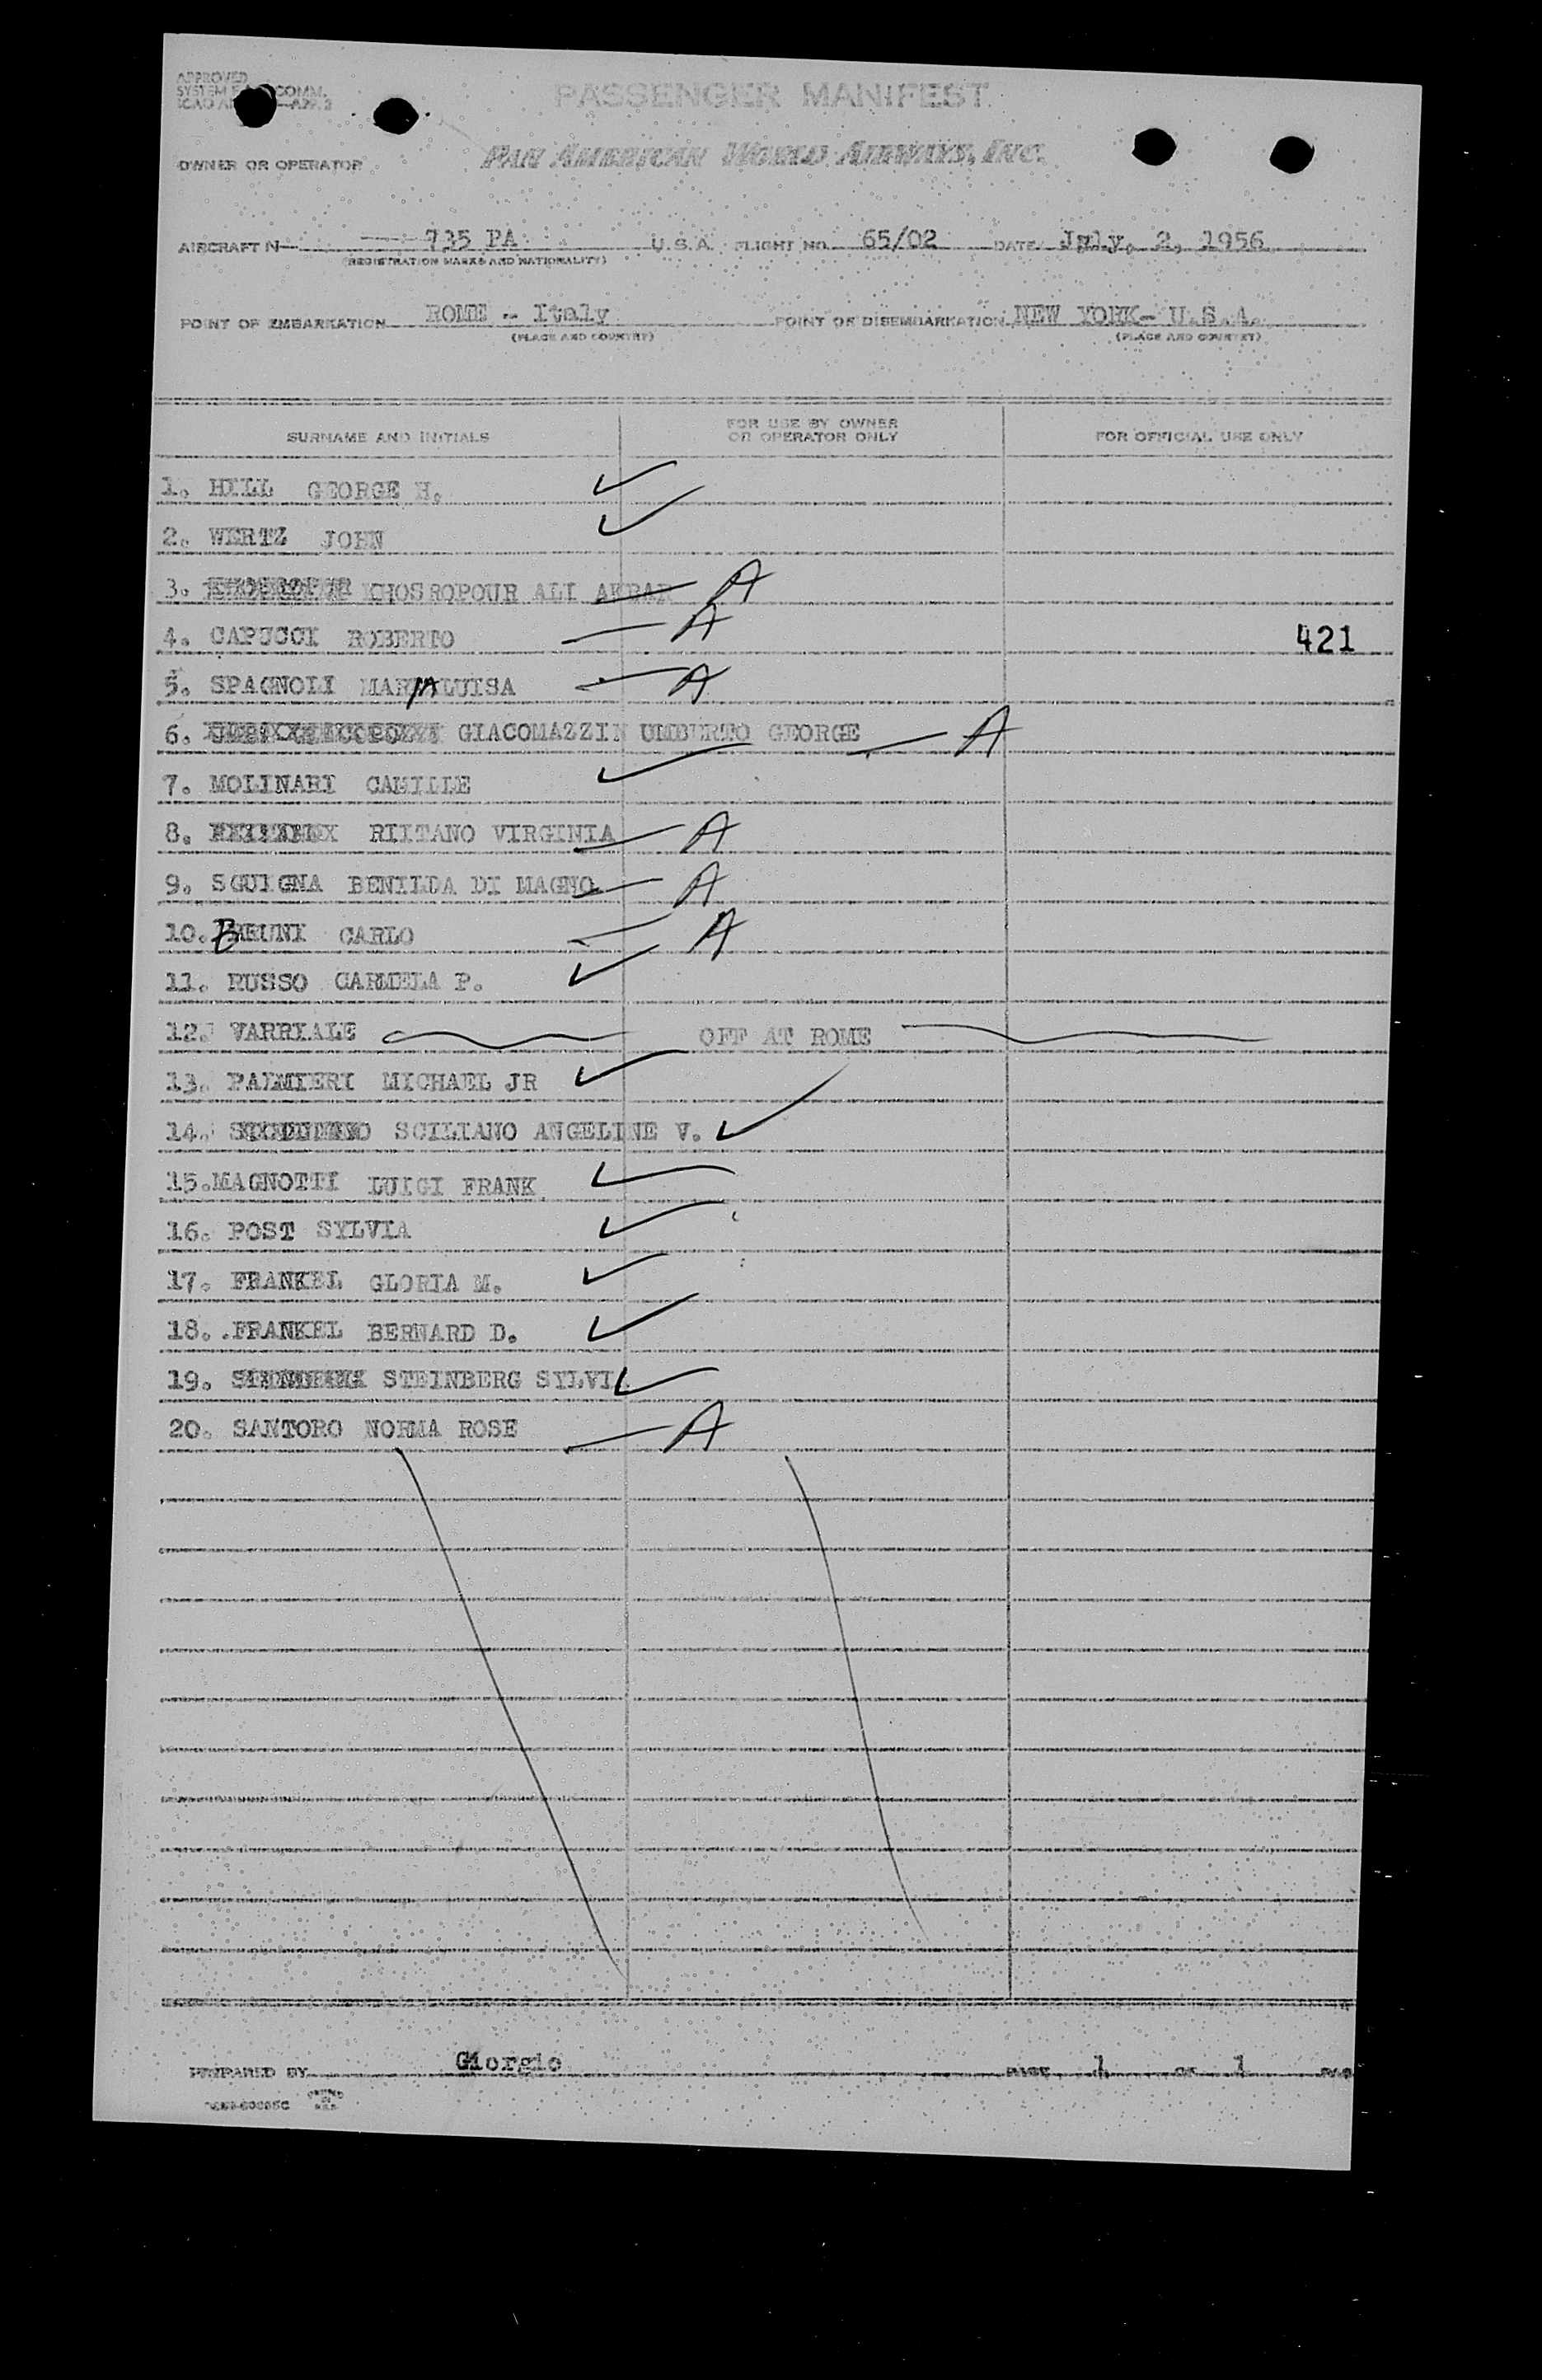 APPROVED
SYSTEM COMM.
ICAO
PASSENGER MANIFEST
OWNER OR OPERATOR PAN AMERICAN WORLD AIRWAYS, INC.
AIRCRAFT N— 735 PA U. S. A. FLIGHT NO. 65/02 DATE July, 2, 1956
(REGISTRATION MARKS AND NATIONALITY)
POINT OF EMBARKATION ROME - Italy POINT OF DISEMBARKATION NEW YORK- U.S.A.
(PLACE AND COUNTRY) (PLACE AND COUNTRY)
SURNAME AND INITIALS FOR USE BY OWNER OR OPERATOR ONLY FOR OFFICIAL USE ONLY
1. HILL GEORGE H. ✓
2. WERTZ JOHN ✓
3. KHOSROPOUR ALI AKBAR — A
4. CAPUCCI ROBERTO — A 421
5. SPAGNOLI MARIALUISA — A
6. GIACOMAZZIN UMBERTO GEORGE — A
7. MOLINARI CAMILLE ✓
8. RIITANO VIRGINIA — A
9. SGUIGNA BENILDA DI MAGNO — A
10. BRUNI CARLO — A
11. RUSSO CARMELA P. ✓
12. VARRIALE OFF AT ROME
13. PALMIERI MICHAEL JR ✓
14. SCILIANO ANGELINE V. ✓
15.MAGNOTTI LUIGI FRANK ✓
16. POST SYLVIA ✓
17. FRANKEL GLORIA M. ✓
18. FRANKEL BERNARD D. ✓
19. STEINBERG SYLVI ✓
20. SANTORO NORMA ROSE — A
PREPARED BY Giorgio PAGE 1 OF 1